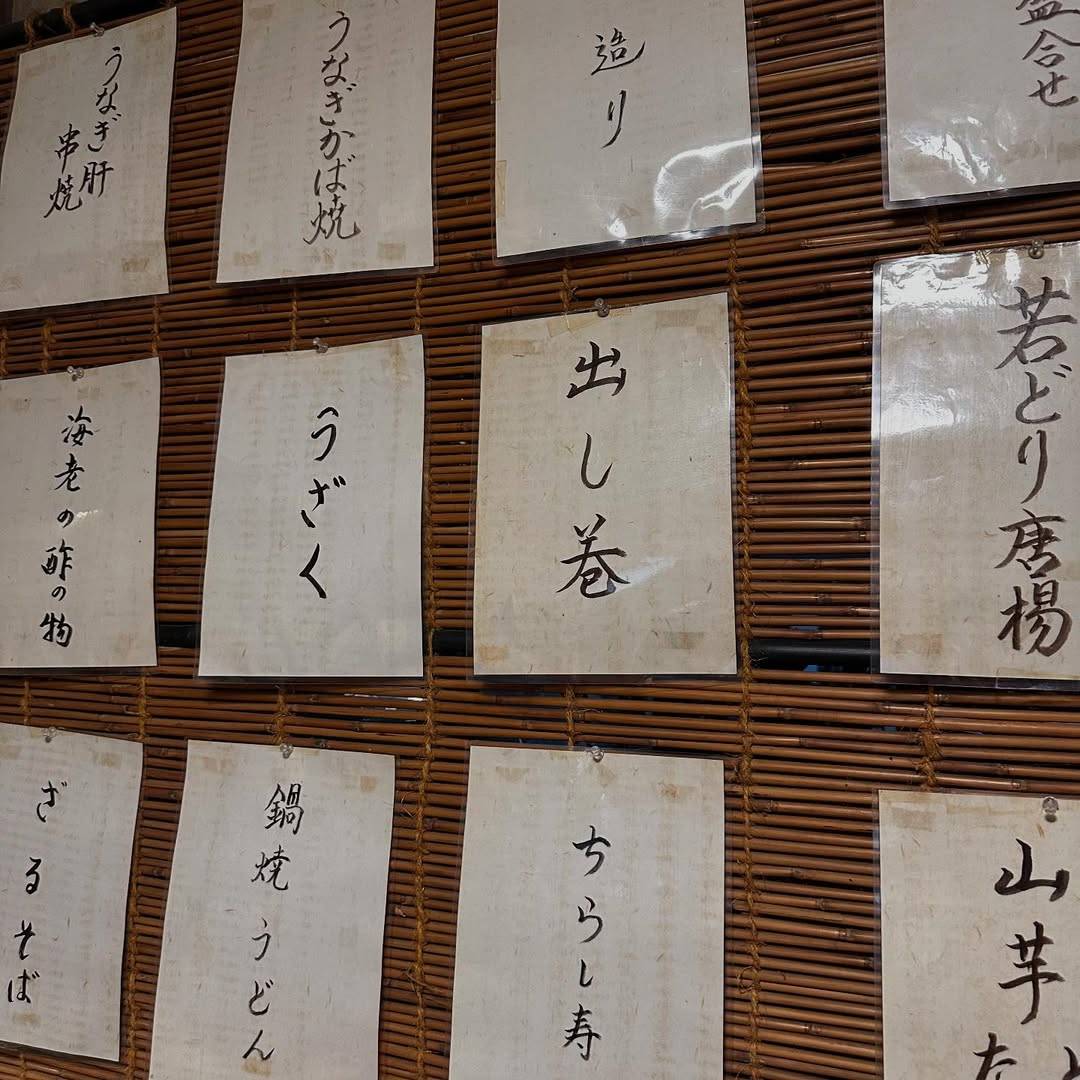 盛合せ
造り
うなぎかば焼
うなぎ肝
串焼
若どり唐揚
出し巻
うざく
海老の酢の物
山芋
ちらし寿
鍋焼うどん
ざるそば